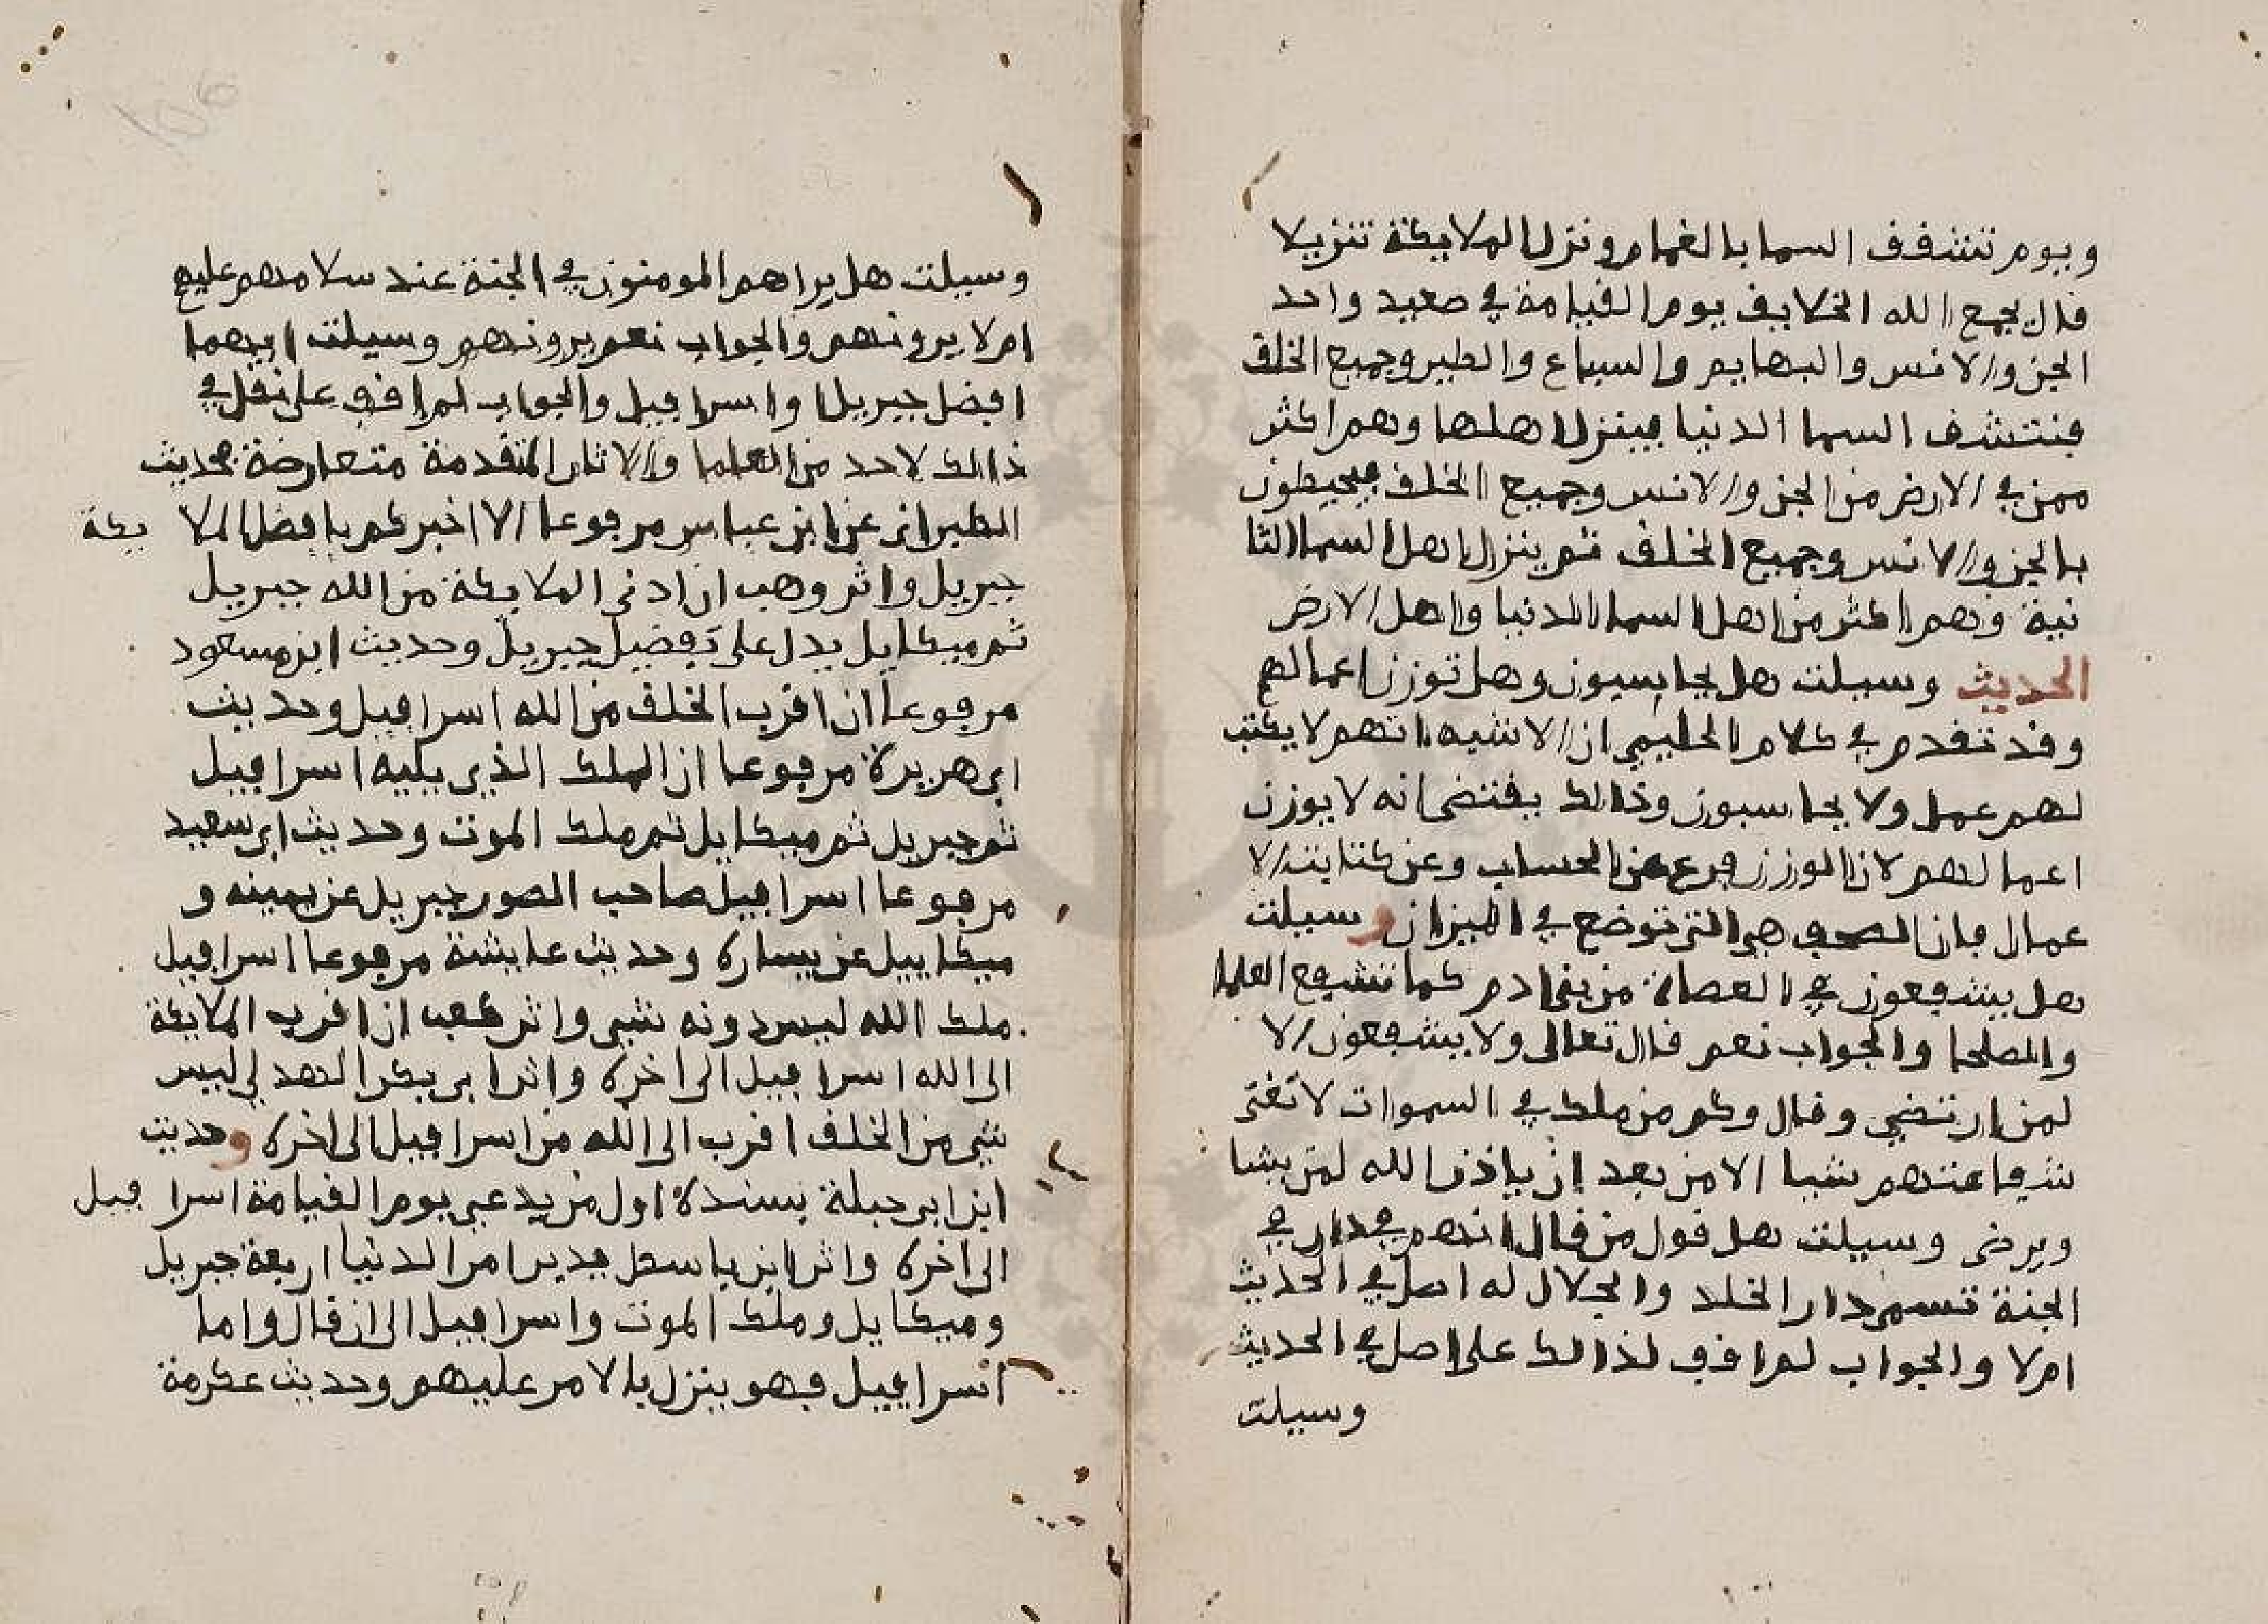 ويوم تتشقف السما بالغمام ونزل الملايكة تنزيلا
قال يجمع الله الخلايق يوم القيامة في صعيد واحد
الجن والانس والبهايم والسباع والطير وجميع الخلق
فتنشق السما الدنيا فينزل اهلها وهم اكثر
ممن في الارض من الجن والانس وجميع الخلق فيحيطون
بالجن والانس وجميع الخلق ثم ينزل اهل السما الثا
نية وهم اكثر من اهل السما الدنيا واهل الارض
الحديث وسيلت هل يحاسبون وهل توزن اعمالهم
وقد تقدم في كلام الحليمي ان الاشبه انهم لا يكتب
لهم عمل ولا يحاسبون وذالك يقتضي انه لا يوزن
اعمالهم لان الوزن فرع عن الحساب وعن كتابت الا
عمال فان الصحف هي التي توضع في الميزان وسيلت
هل يشفعون في العصاة من بني ادم كما تشفع العلما
والصلحا والجواب نعم قال تعالى ولا يشفعون الا
لمن ارتضي وقال وكم من ملك في السموات لا تغني
شفاعتهم شيا الا من بعد ان ياذن الله لمن يشا
ويرضى وسيلت هل قول من قال انهم في دار في
الجنة تسمى دار الخلد والجلال له اصل في الحديث
ام لا والجواب لم اقف لذالك على اصل في الحديث
وسيلت
وسيلت هل يراهم المومنون في الجنة عند سلامهم عليهم
ام لا يرونهم والجواب نعم يرونهم وسيلت ايهما
افضل جبريل او اسرافيل والجواب لم اقف على نقل في
ذالك لاحد من العلما والاثار المتقدمة متعارضة فحديث
الطبراني عن ابن عباس مرفوعا الا اخبركم بافضل الملا يكة
جبريل واثر وهب ان ادنى الملايكة من الله جبريل
ثم ميكايل يدل على تفضيل جبريل وحديث ابن مسعود
مرفوعا ان اقرب الخلق من الله اسرافيل وحديث
ابي هريرة مرفوعا ان الملك الذي يليه اسرافيل
ثم جبريل ثم ميكايل ثم ملك الموت وحديث ابي سعيد
مرفوعا اسرافيل صاحب الصور جبريل عن يمينه و
ميكاييل عن يساره وحديث عايشة مرفوعا اسرافيل
ملك الله ليس دونه شي واثر كعب ان اقرب الملايكة
الى الله اسرافيل الى اخره واثر ابي بكر الهذلي ليس
شي من الخلق اقرب الى الله من اسرافيل الى اخره وحديث
ابن ابي جبلة بسنده اول من يدعى يوم القيامة اسرا فيل
الى اخره واثر ابن باسط يدير امر الدنيا اربعة جبريل
وميكايل وملك الموت واسرافيل الى ان قال واما
اسرافيل فهو ينزل بالامر عليهم وحديث عكرمة